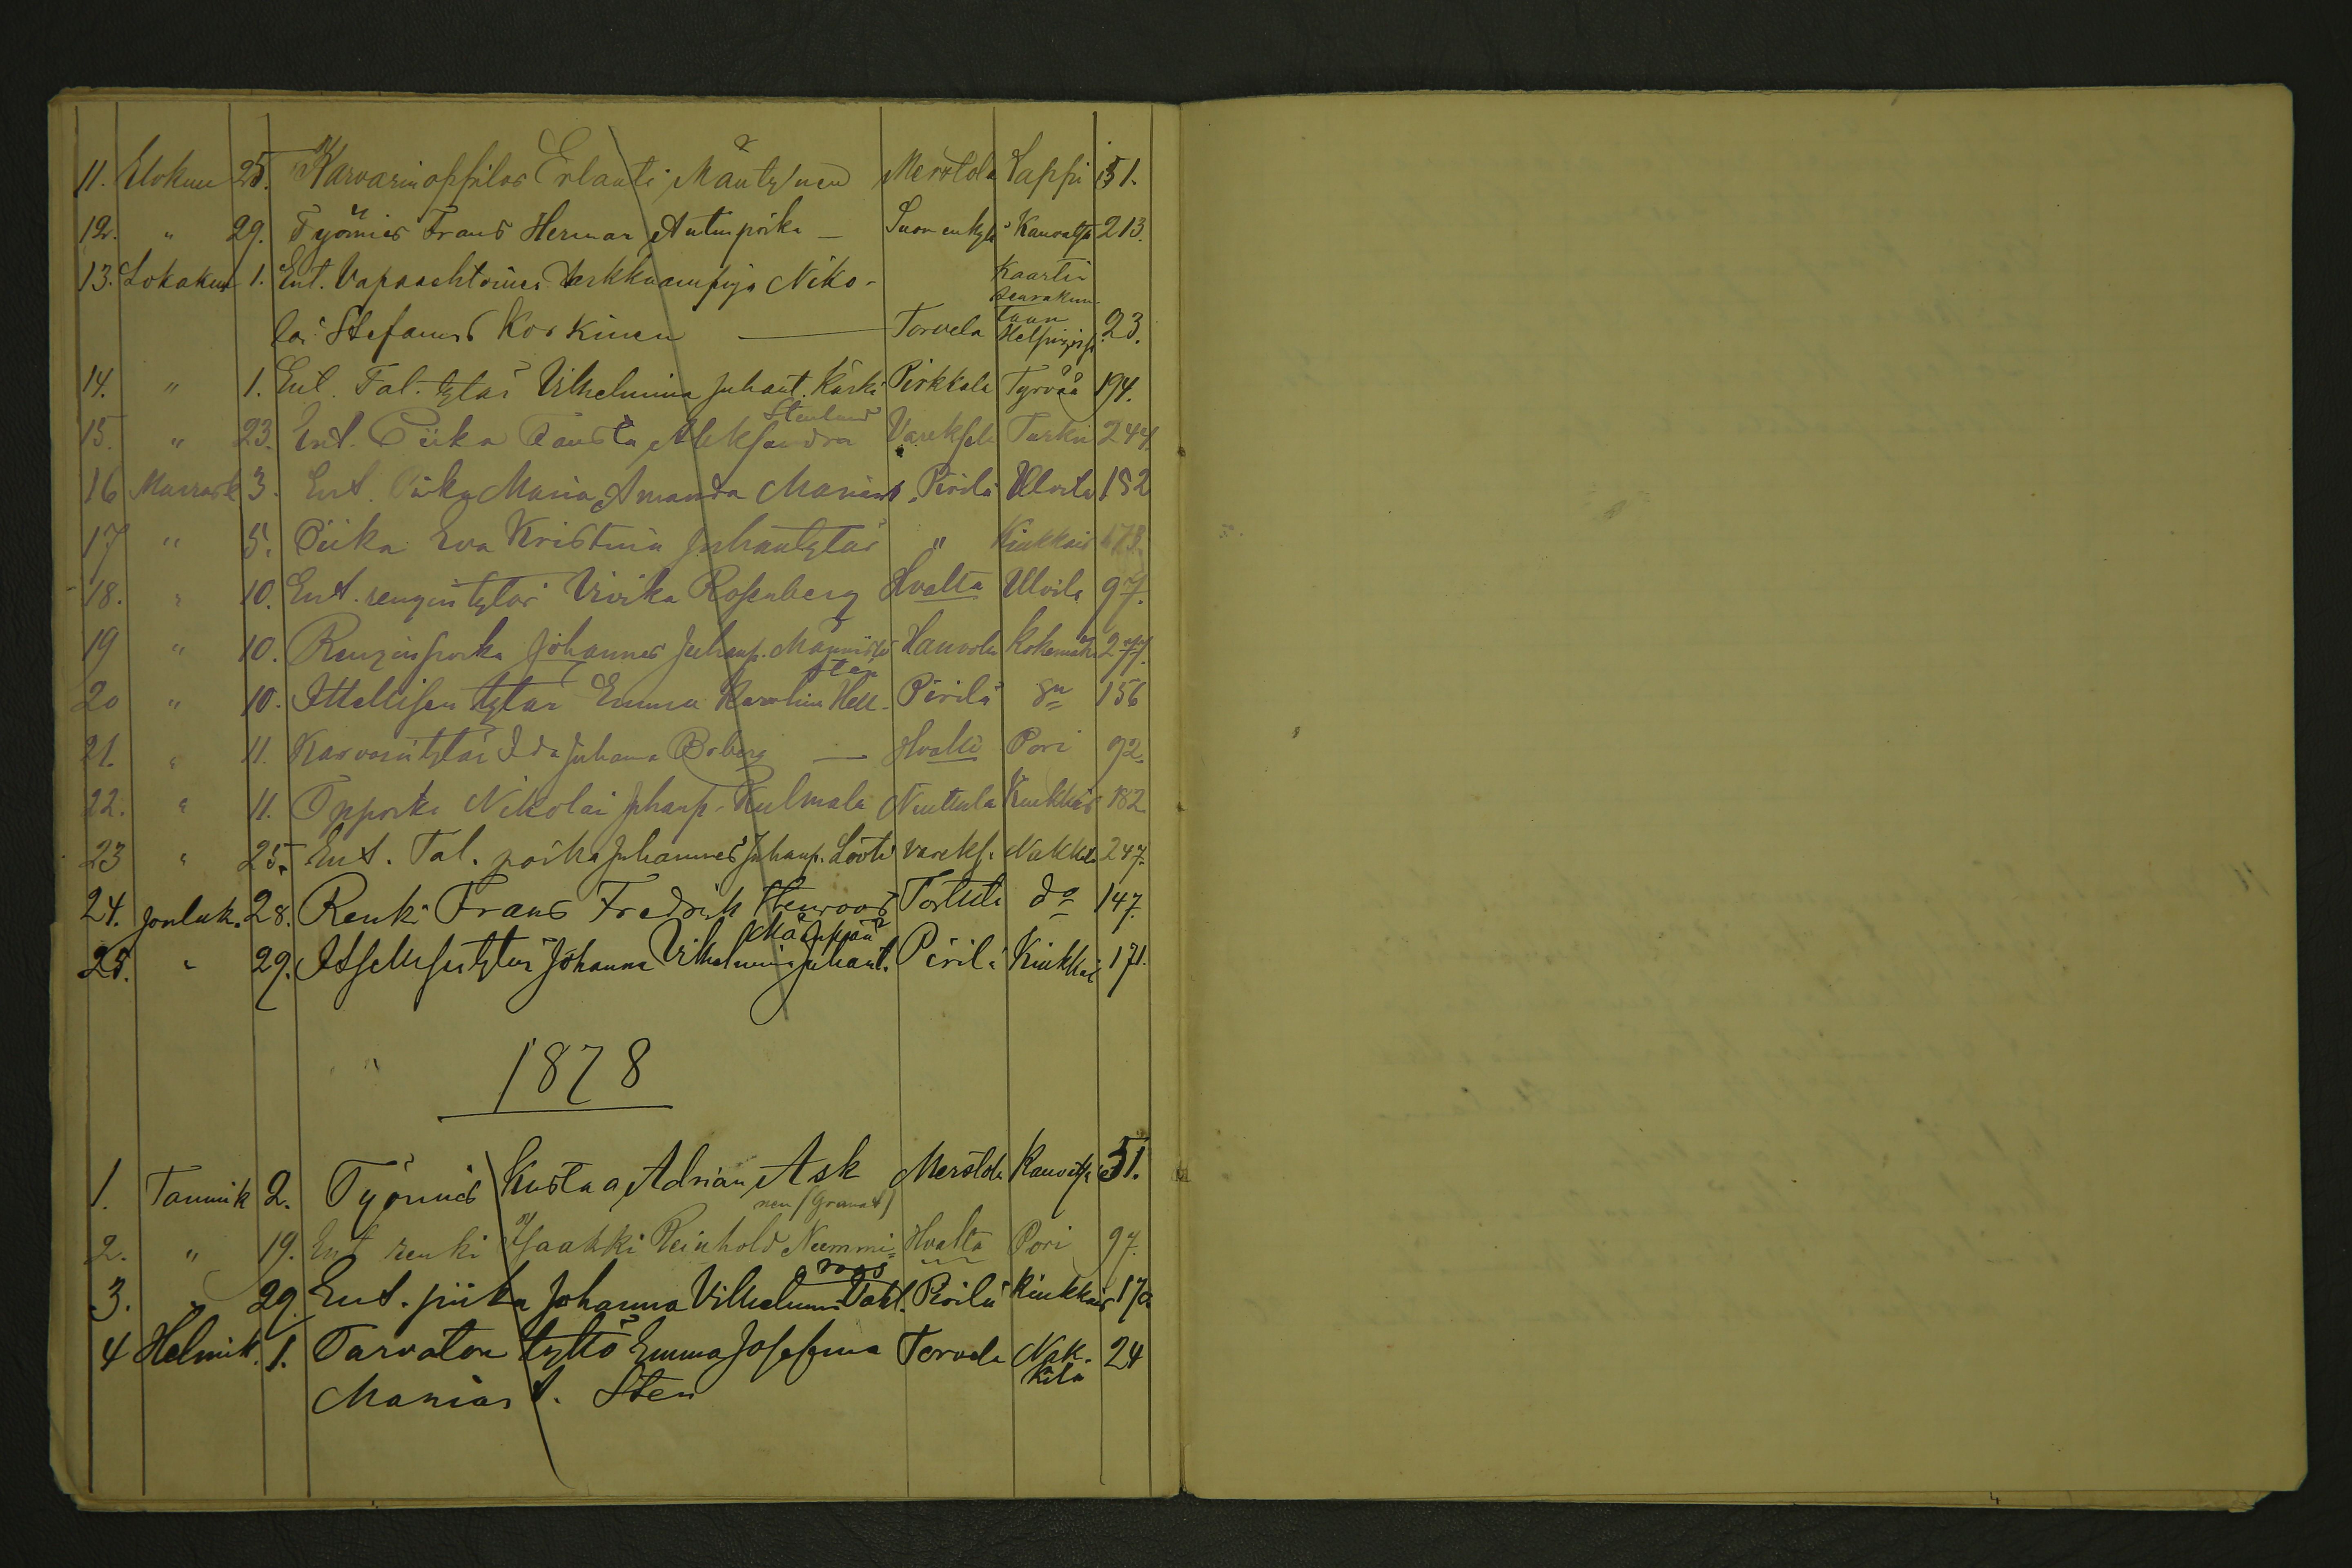 11. Elokuu 25. Karvarinoppilas Erlanti Mäntynen Merstola Lappi 51.
12. " 29. Työmies Frans Herman Antinpoika — Suomenkylä Kauvatsa 213.
13. Lokakuu 1. Ent. Vapaaehtoinen tarkkaampuja Niko-
Kaartin seurakun-
lai Stefanus Korkinen — Torvela taan Helsingissä 23.
14. " 1. Ent. Tal. tytär Vilhelmina Juhant. Kärki Pirkkala Tyrvää 194.
Stenlund
15. " 23. Ent. Piika Fausta Aleksandra Vareksela Turku 244.
16 Marrask 3. Ent. Piika Maria Amanda Mariant. Pirilä Ulvila 152
17 " 5. Piika Eva Kristina Juhantytär " Kiukkais 173.
18. " 10. Ent. rengin tytär Viivika Rosenberg Hvalta Ulvila 97.
19 " 10. Rengin poika Johannes Juhanp. Männistö Hanvola Kokemäki 277.
sten
20 " 10. Ittellisen tytär Emma Karolina Hell- Pirilä d:o 156
21. " 11. Karvarin tytär Ida Juhana Boberg — Hvalta Pori 92.
22. " 11. Tpoika Nikolai Juhanp. Kulmala Nuttula Kiukkais 182
23 " 25. Ent. Tal. poika Juhannes Juhanp. Lööti Vareks. Nakkila 247.
24. Jouluk. 28. Renki Frans Fredrik Henroos Forsula d:o 147.
Mäenpään
25. " 29. Itsellisen tytär Johanna Vilhelmina Juhant. Pirilä Kiukkai 171.
1878
1. Tammik 2. Työmies Kustaa Adrian Ask Merstola Kauvatsa 51.
nen (Granat)
2. " 19. Ent renki Jaakki Reinhold Niemmi- Hvalta Pori 97.
roos
3. " 29. Ent. piika Johanna Vilhelmina Dahl- Pirilä Kiukkais 170
4 Helmik. 1. Turvaton tyttö Emma Josefina Torvela Nak- 24
kila
Mariant. Sten